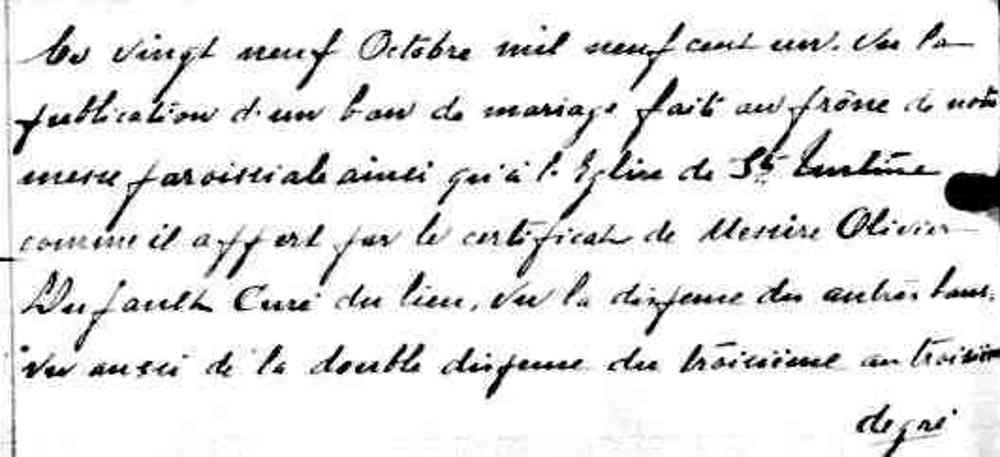 Le vingt neuf Octobre mil neuf cent un. Vu la
publication d'un ban de mariage faite au prône de notre
messe paroissiale ainsi qu'à l'Eglise de Ste
comme il appert par le certificat de Messire Olivier
Dufault Curé du lieu, vu la dispense des autres bans,
vu aussi de la double dispense du troisième au troisième
degré